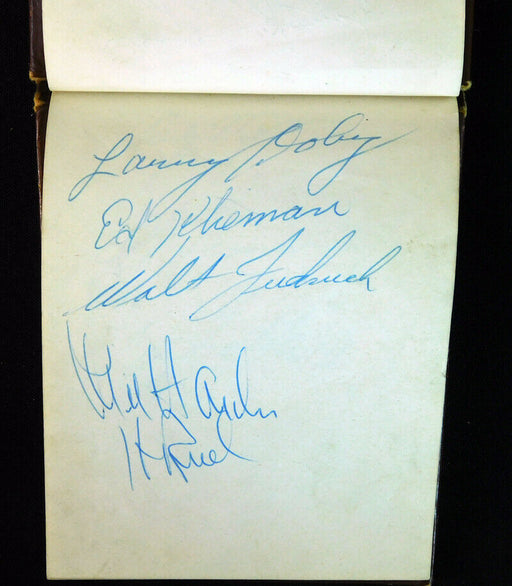 Larry Doby
Ed Klieman
Walt Judnich
Mel Harder
H Ruel